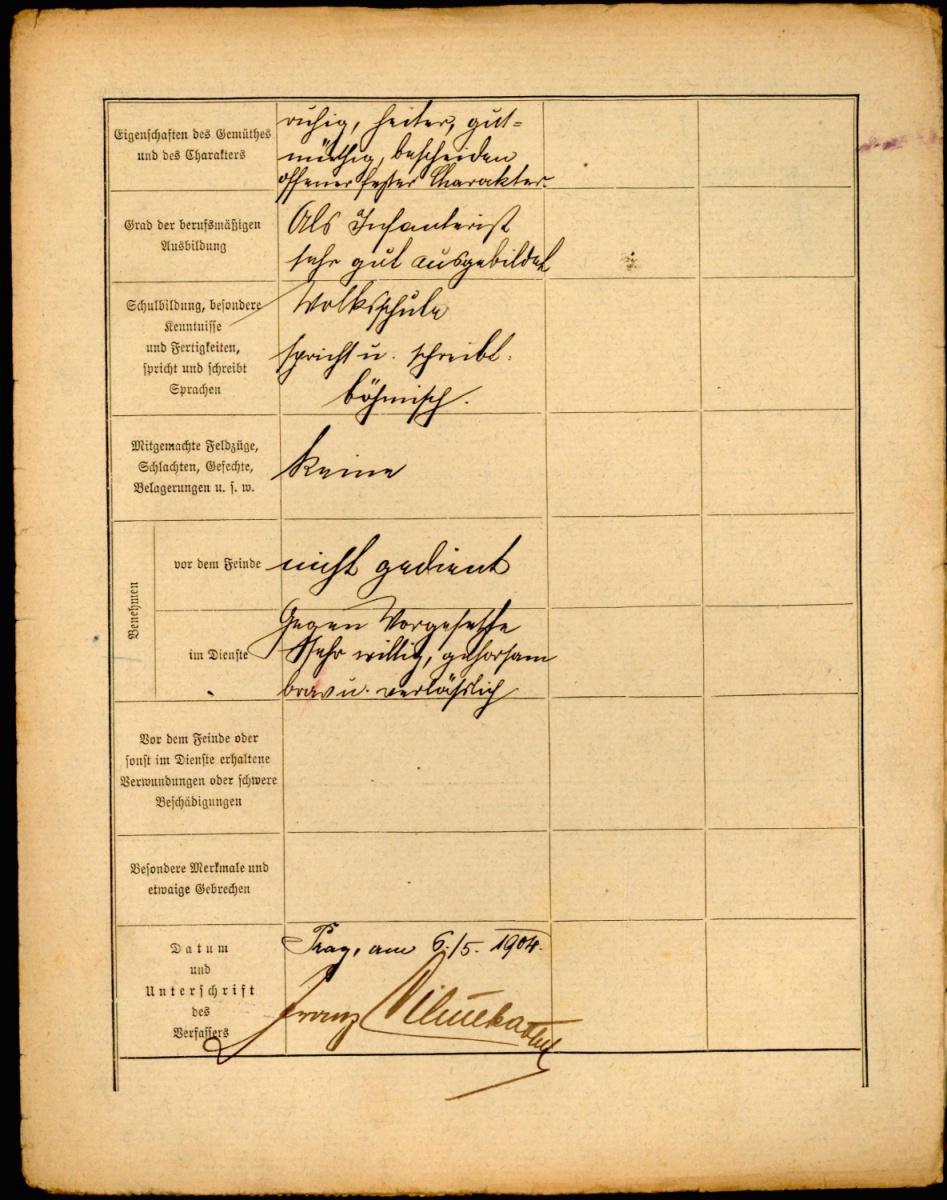 Eigenschaften des Gemüthes
und des Charakters
ruhig, heiter, gut-
müthig, bescheiden
offener fester Charakter.
Grad der berufsmäßigen
Ausbildung
Als Infanterist
sehr gut ausgebildet
Schulbildung, besondere
Kenntnisse
und Fertigkeiten,
spricht und schreibt
Sprachen
Volksschule
spricht u. schreibt
böhmisch.
Mitgemachte Feldzüge,
Schlachten, Gefechte,
Belagerungen u. s. w.
Keine
Benehmen
vor dem Feinde
nicht gedient
im Dienste
Gegen Vorgesetzte
sehr willig, gehorsam
brav u. verläßlich
Vor dem Feinde oder
sonst im Dienste erhaltene
Verwundungen oder schwere
Beschädigungen
Besondere Merkmale und
etwaige Gebrechen
Datum
und
Unterschrift
des
Verfassers
Prag, am 6./5. 1904.
Franz